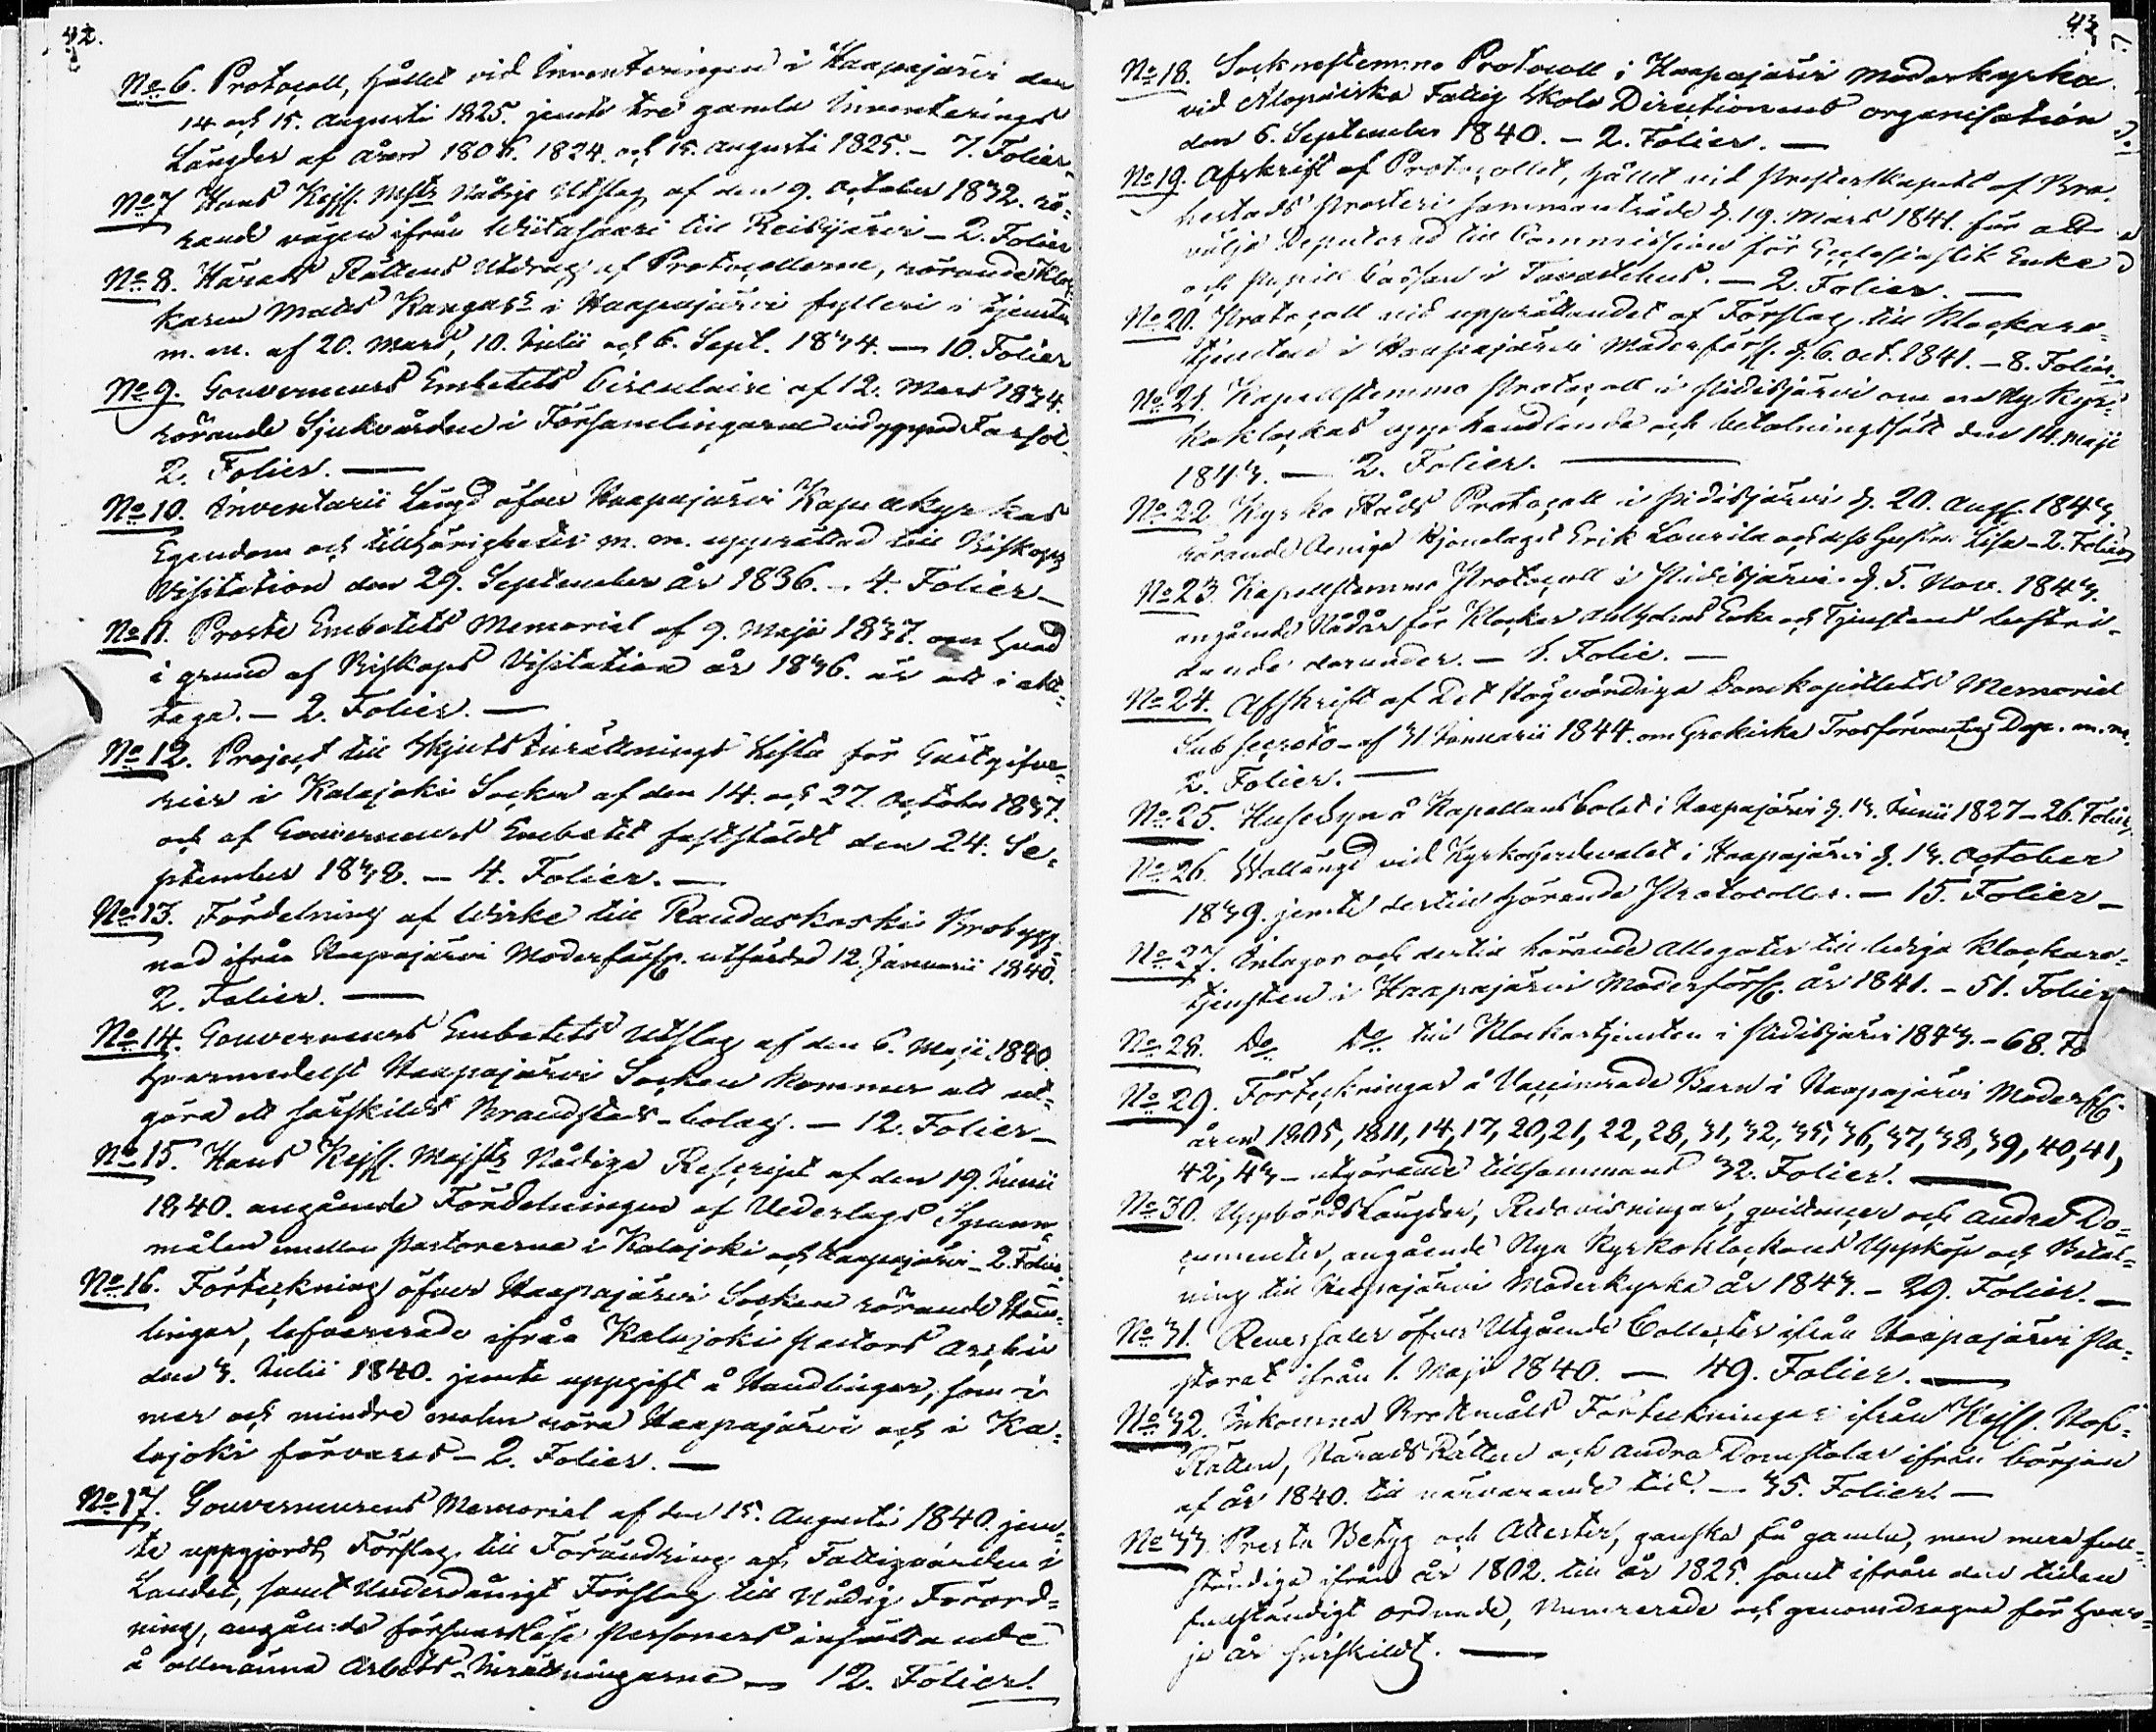 42.
No 6. Protocoll, hållet vid Inventeringen i Haapajärvi den
14 och 15. Augusti 1825. jemte tre gamla Inventerings
Längder af åren 1806. 1824. och 15. Augusti 1825. – 7. Folier
No 7 Hans Kejs. Majts Nådige Utslag af den 9. October 1832. rö-
rande vägen ifrån Witasaari till Reisjärvi – 2. Folier
No 8. Härads Rättens Utdrag af Protocollerne, rörande Kloc-
karen Matts Kangas i Haapajärvi fylleri i tjensten
m. m. af 20. Mars, 10. Julii och 6. Sept. 1834. — 10. Folier
No 9. Gouverneurs Embetets Circulaire af 12. Mars 1834.
rörande Sjukvården i Församlingarne vid Farsot
2. Folier. —
No 10. Inventarii Längd öfver Haapajärvi Kyrkas
Egendom och tillhörigheter m. m. upprättad till Biskops
Visitation den 29. September år 1836. – 4. Folier –
No 11. Proste Embetets Memorial af 9. Maji 1837. om hvad
i grund af Biskops Visitation år 1836. är att i akt-
taga. – 2. Folier. —
No 12. Project till Skjuts Inrättnings Lista för Gästgifve-
rier i Kalajoki Socken af den 14. och 27. October 1837.
och af Gouverneurs Embetet fastställdt den 24. Se-
ptember 1838. – 4. Folier. —
No 13. Fördelning af Wirke till Raudaskoski Brobygg-
nad ifrån Haapajärvi Moderförs. utfärdad 12. Januarii 1840.
2. Folier. —
No 14. Gouverneurs Embetets Utslag af den 6. Maji 1840.
hvarmedelst Haapajärvi Socken kommer att ut-
göra ett särskildt Brandstods-bolag. – 12. Folier –
No 15. Hans Kejs. Majts Nådiga Rescript af den 19. Junii
1840. angående Fördelningen af Vederlags Spann-
målen emellan Pastorerna i Kalajoki och Haapajärvi – 2. Folier
No 16. Förteckning öfver Haapajärvi Socken rörande Hand-
lingar, lefvererade ifrån Kalajoki Pastors Archiv
den 3. Julii 1840. jemte uppgift å Handlingar, som i
mer och mindre mohn röra Haapajärvi och i Ka-
lajoki förvaras – 2. Folier. —
No 17. Gouverneurens Memorial af den 15. Augusti 1840. jem-
te uppgjordt Förslag till Förändring af Fattigvården i
Landet, samt Underdånigt Förslag till Nådig Förord-
ning, angående försvarslöse personers insättande
å allmänna Arbets-Inrättningarne — 12. Folier.
43
No 18. Socknestemmo Protocoll i Haapajärvi moderkyrka
vid Alopaiska Fattig Skole Directionens organisation
den 6. September 1840. – 2. Folier. —
No 19. Afskrift af Protocollet, hållet vid Presterskapets af Bra-
hestads Prosteri sammanträde d. 19. Mars 1841. för att
välja Deputerad till Commission för Ecclesiastik Enke
och Pupill Cassan i Tavastehus. – 2. Folier. —
No 20. Protocoll vid upprättandet af Förslag till Klockare-
tjensten i Haapajärvi Moderförs. d. 6. Oct. 1841. – 8. Folier.
No 21. Kapellstemmo Protocoll i Pidisjärvi om en Ny Kyr-
koklockas upphandlande och betalningssätt den 14. Maji
1843. — 2. Folier. —
No 22 Kyrko Råds Protocoll i Pidisjärvi d. 20. Aug. 1843
rörande Oeniga Hjonelaget Erik Laurila och dess hustru Lisa – 2. Folier
No 23. Kapellstemmo Protocoll i Pidisjärvi d. 5. Nov. 1843.
angående Nådår för Klockar Enka och Tjenstens bestri-
dande derunder. – 1. Folie. —
No 24. Afskrift af Det Högvördiga Domkapitlets Memorial
Sub secreto – af 31 Januarii 1844. om Grekiska Trosförvanter m. m.
2. Folier. —
No 25. Husesyn å Kapellansbolet i Haapajärvi d. 13. Junii 1827 – 26. Folier
No 26. Wallängd vid Kyrkoherdevalet i Haapajärvi d. 13. October
1839. jemte dertill hörande Protocoller. – 15. Folier –
No 27. Inlagor och dertill hörande Allegater till lediga Klockare-
tjensten i Haapajärvi Moderförs. år 1841. – 51. Folier
No 28. Do Do till Klockartjensten i Pidisjärvi 1843. – 68. Fo
No 29. Förteckningar å Vaccinerade Barn i Haapajärvi Moderförs.
åren 1805, 1811, 14, 17, 20, 21, 22, 28, 31, 32, 35, 36, 37, 38, 39, 40, 41,
42, 43 – utgörande tillsammans 32. Folier. —
No 30. Uppbörds Längder, Redovisningar, qvittencer och andra Do-
cumenter, angående Nya Kyrkoklockans Uppköp och Betal-
ning till Haapajärvi Moderkyrka år 1843. – 29. Folier. —
No 31. Reversaler öfver Utgående Collecter ifrån Haapajärvi Pa-
storat ifrån 1. Maji 1840. — 49. Folier. —
No 32. Inkomna Brottmåls Förteckningar ifrån Kejs. Hof-
Rätten, Härads Rätten och andra Domstolar ifrån början
af år 1840. till närvarande tid. — 35. Folier. —
No 33 Presta Betyg och Attester, ganska få gamla, men mera full-
ständiga ifrån år 1802. till år 1825. samt ifrån den tiden
fullständigt ordnade, Numrerade och genomdragna för hvar-
je år särskildt. —